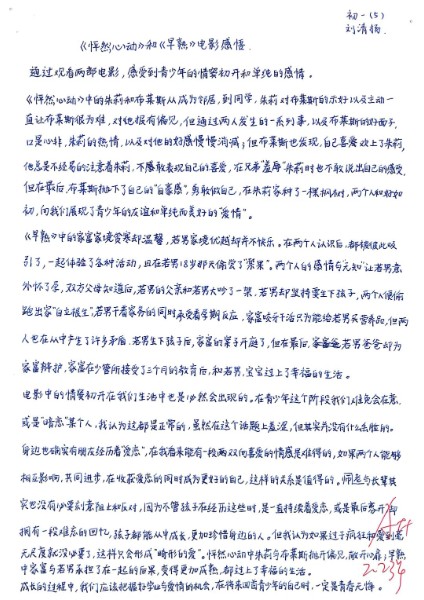 初一(5)
刘清扬
《怦然心动》和《早熟》电影感悟.
通过观看两部电影，感受到青少年的情窦初开和单纯的感情。
《怦然心动》中的朱莉和布莱斯从成为邻居，到同学，朱莉对布莱斯的示好以及主动一
直让布莱斯很为难，对她很有偏见，但通过两人发生的一系列事，以及布莱斯的好面子，
口是心非，朱莉的热情，以及对他的好感慢慢消减；但布莱斯也发现，自己喜欢上了朱莉，
他总是不经意的注意着朱莉，不愿敢表现自己的喜爱，在兄弟"羞辱"朱莉时也不敢说出自己的感受，
但在最后，布莱斯抛下了自己的"自尊感"，勇敢做自己，在朱莉家种了一棵梧桐树，两个人和好如
初，向我们展现了青少年的友谊和单纯而美好的"爱情"。
《早熟》中的家富家境贫寒却温馨，若男家境优越却并不快乐。在两个人认识后，都被彼此吸
引了，一起体验了各种活动，且在若男18岁那天偷尝了"禁果"。两个人的感情与无知"让若男意
外怀了孕，双方父母知道后，若男的父亲和若男大吵了一架，若男却坚持要生下孩子，两个人便偷
跑出家"自立根生"，若男干着家务的同时承受着孕期反应，家富咬牙干活只为能给若男买营养品，但两
人也在从中产生了许多矛盾，若男生下孩子后，家富的案子开庭了，但在最后，若男爸爸却为
家富辩护，家富在少管所接受了三个月的教育后，和若男，宝宝过上了幸福的生活。
电影中的情窦初开在我们生活中也是必然会出现的。在青少年这个阶段我们难免会在意，
或是"暗恋"某个人，我认为这都是正常的，虽然在这个话题上羞涩，但其实并没有什么丢脸的。
身边也确实有朋友经历着"爱恋"，在我看来能有一段两双向喜爱的情感是难得的，如果两个人能够
相互影响，共同进步，在收获爱恋的同时成为更好的自己，这样的关系是值得的。师老与长辈其
实也没有必要刻意阻止和反对，因为不管孩子在经历这些时，是一直持续着爱恋，或是最后分开，却
拥有一段难忘的回忆，孩子都能从中成长，更加珍惜身边的人。但我认为如果过于疯狂和爱到
无尺度就没必要了，这样只会形成"畸形的爱"。怦然心动中朱莉与布莱斯抛开偏见，敞开心扉；早熟
中家富与若男承担了在一起的后果，变得更加成熟，都过上了幸福的生活。
成长的过程中，我们应该把握好学业与爱情的机会，在将来回首青少年的自己时，一定是青春无悔。
A+